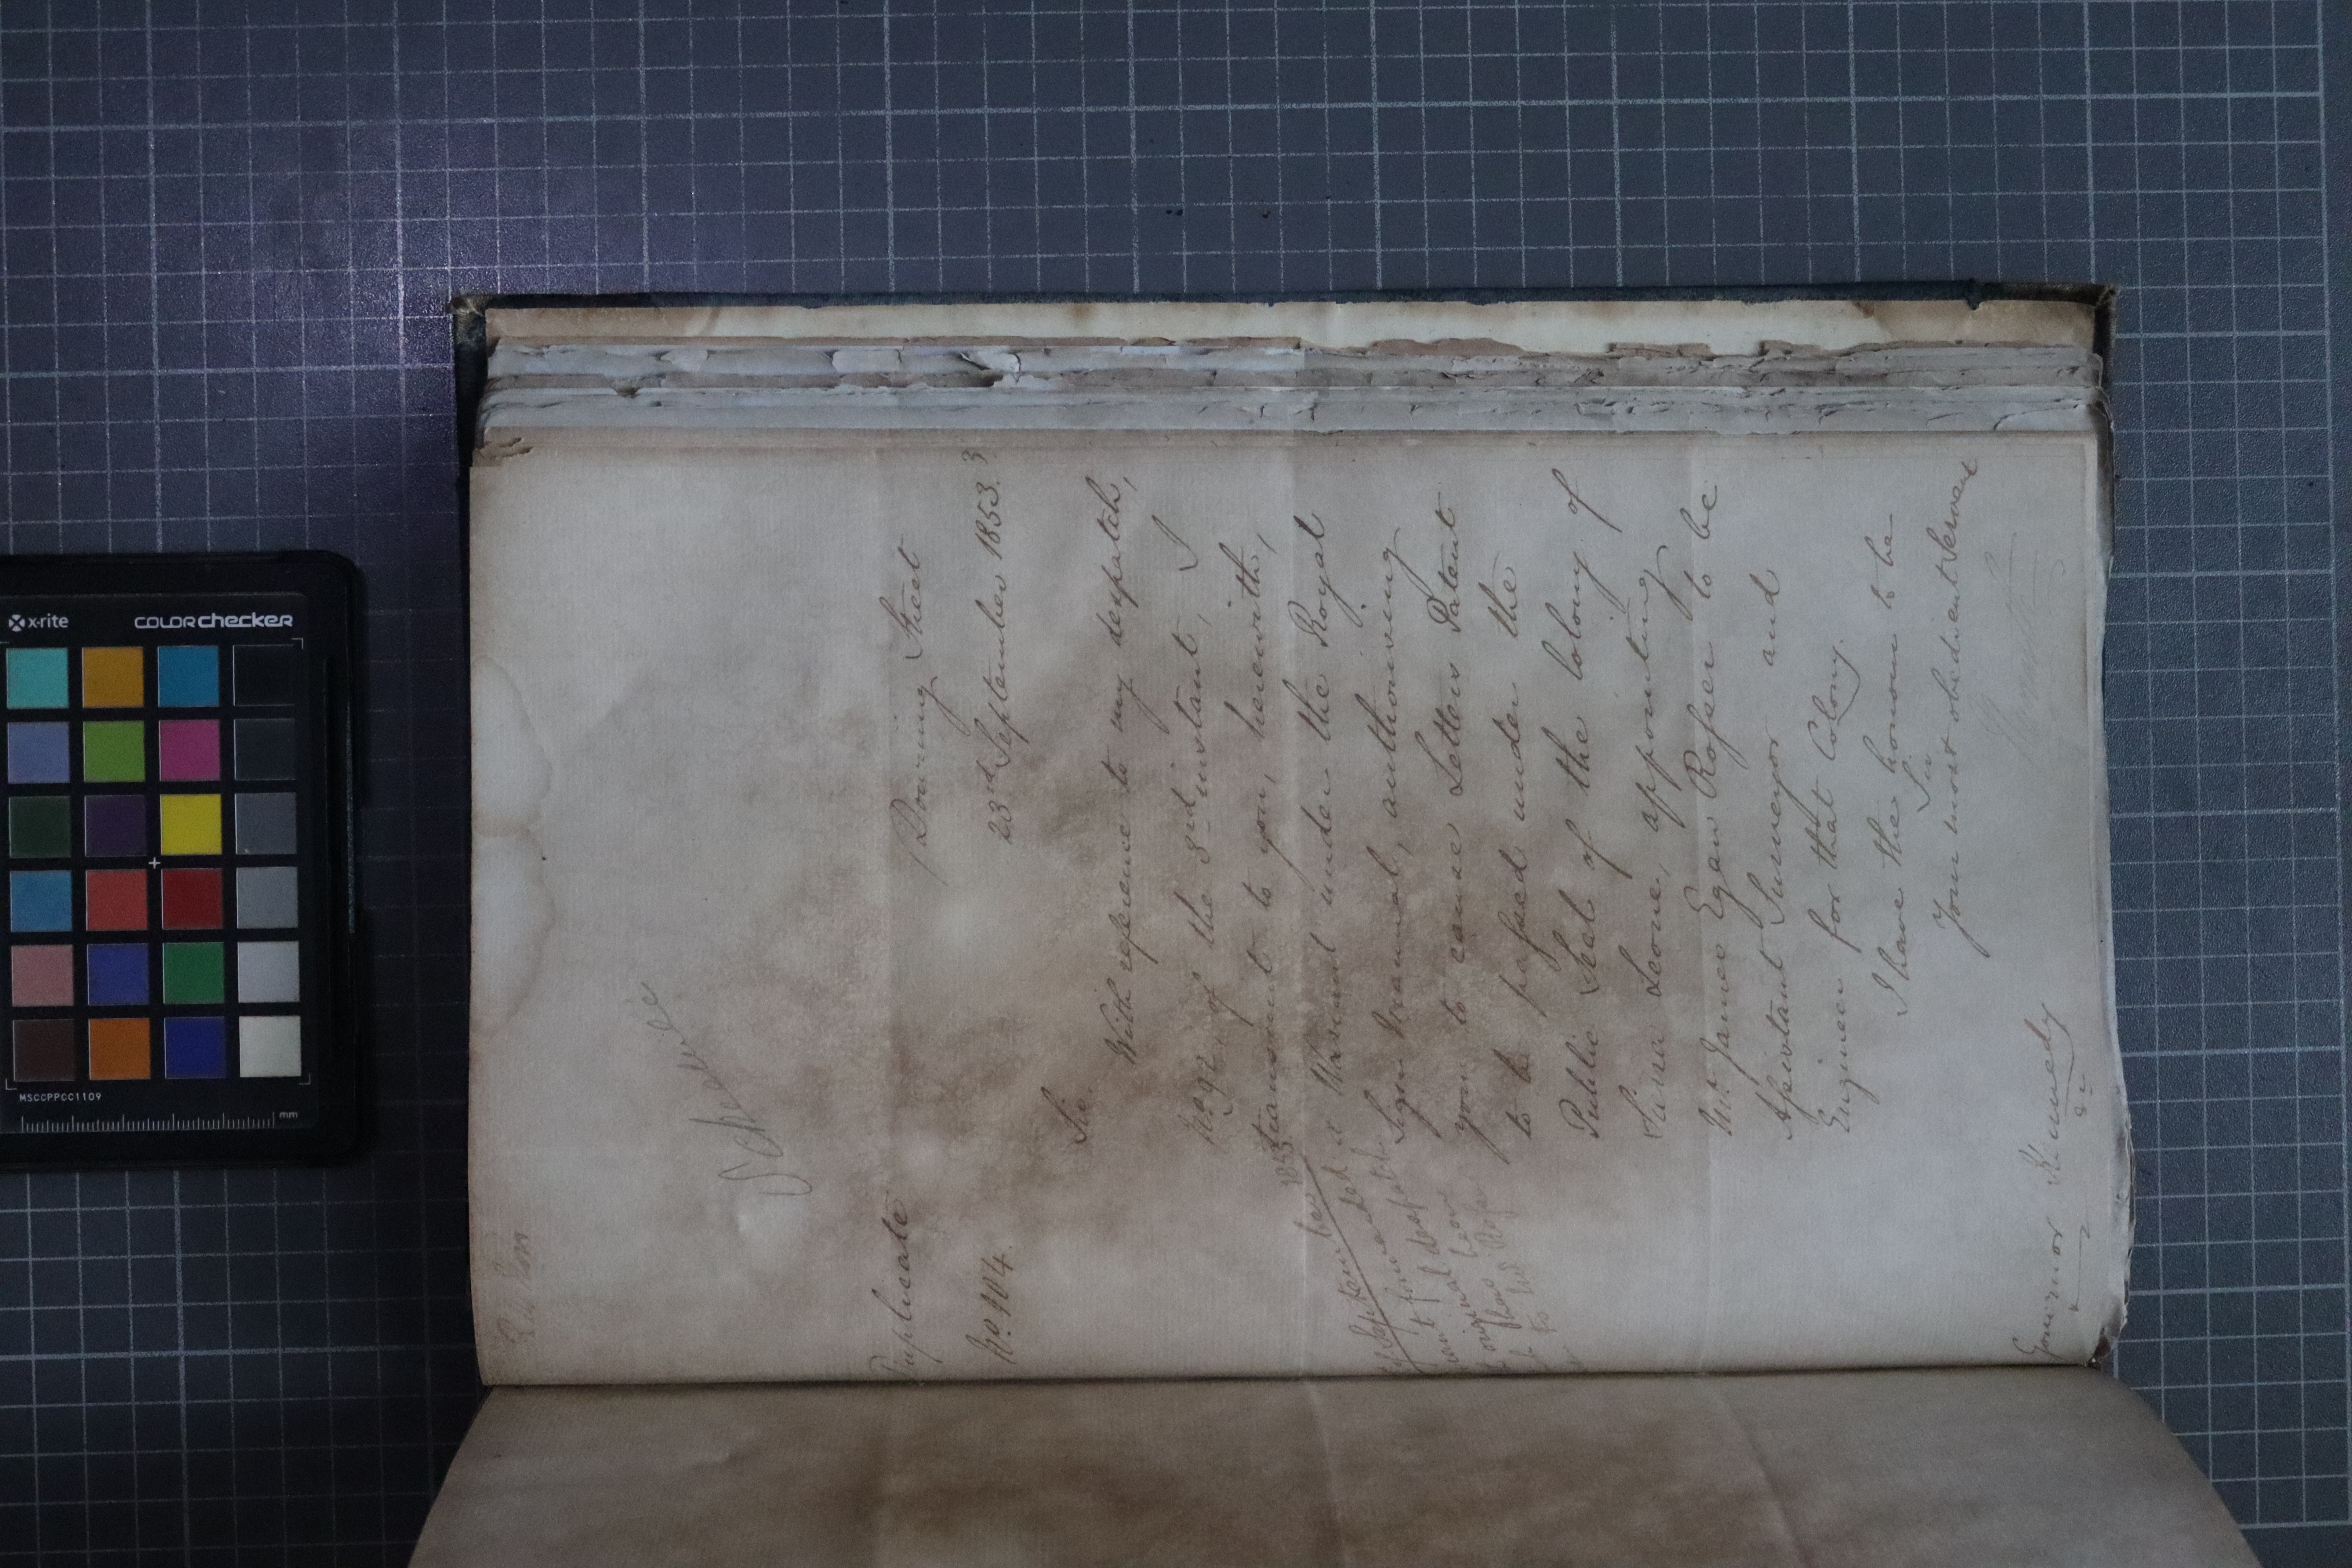 Schedule
Duplicate
Downing Street
No. 104.
23rd September 1853.
Sir.
With reference to my despatch,
No. 92 of the 3rd instant, I
transmit to you, herewith,
a Warrant under the Royal
Sign Manual, authorising
you to cause Letters Patent
to be passed under the
Public Seal of the Colony of
Sierra Leone, appointing
Mr. James Egan Rosser to be
Assistant Surveyor and
Engineer for that Colony.
I have the honour to be
Sir
Your most obedient Servant
Governor Kennedy
September 1853
original
to Mr Rosser
x-rite
colorchecker
MSCCPPCC1109
mm